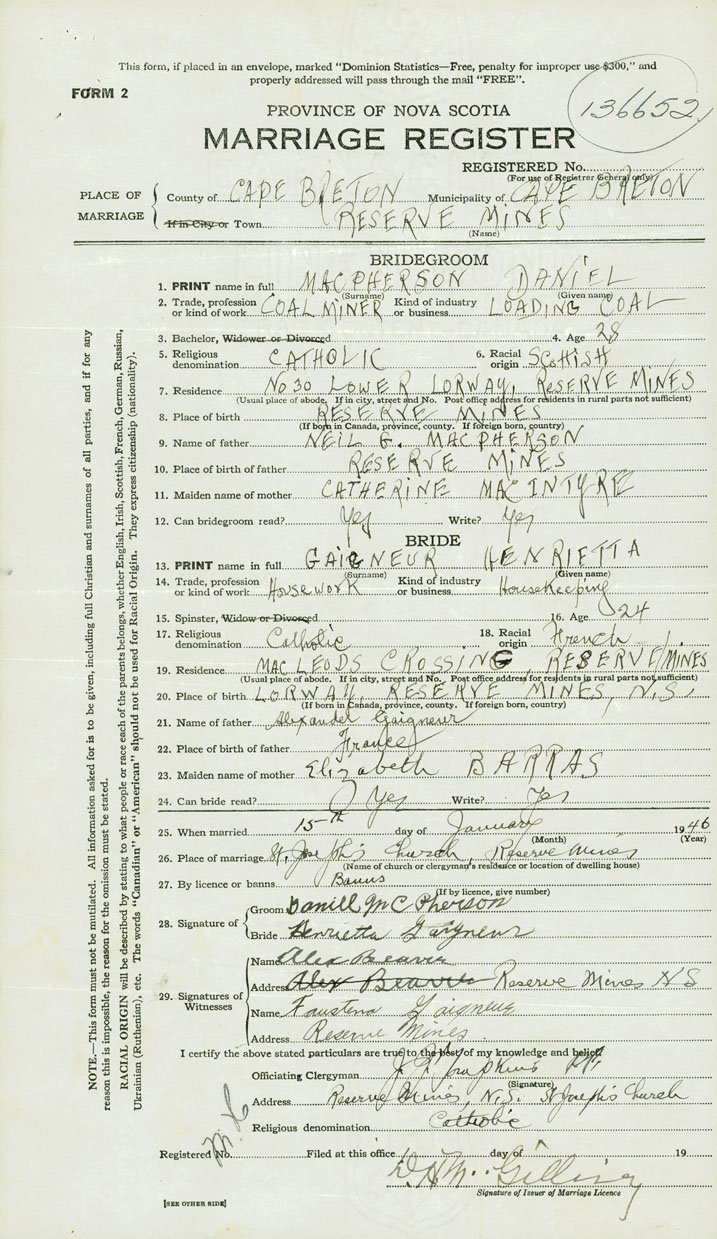 This form, if placed in an envelope, marked "Dominion Statistics—Free, penalty for improper use $300," and
properly addressed will pass through the mail "FREE".
FORM 2
136652
PROVINCE OF NOVA SCOTIA
MARRIAGE REGISTER
REGISTERED No.
(For use of Registrar General only)
PLACE OF MARRIAGE
County of CAPE BRETON Municipality of CAPE BRETON
If in City or Town RESERVE MINES
(Name)
BRIDEGROOM
1. PRINT name in full MACPHERSON DANIEL
(Surname) (Given name)
2. Trade, profession or kind of work COAL MINER Kind of industry or business LOADING COAL
3. Bachelor, Widower or Divorced 4. Age 28
5. Religious denomination CATHOLIC 6. Racial origin Scottish
7. Residence No 30 LOWER LORWAY, RESERVE MINES
(Usual place of abode. If in city, street and No. Post office address for residents in rural parts not sufficient)
8. Place of birth RESERVE MINES
(If born in Canada, province, county. If foreign born, country)
9. Name of father NEIL G. MACPHERSON
10. Place of birth of father RESERVE MINES
11. Maiden name of mother CATHERINE MACINTYRE
12. Can bridegroom read? Yes Write? Yes
BRIDE
13. PRINT name in full GAIGNEUR HENRIETTA
(Surname) (Given name)
14. Trade, profession or kind of work Housework Kind of industry or business Housekeeping
15. Spinster, Widow or Divorced 16. Age 24
17. Religious denomination Catholic 18. Racial origin French
19. Residence MACLEODS CROSSING RESERVE MINES
(Usual place of abode. If in city, street and No. Post office address for residents in rural parts not sufficient)
20. Place of birth LORWAY, RESERVE MINES, N.S.
(If born in Canada, province, county. If foreign born, country)
21. Name of father Alexander Gaigneur
22. Place of birth of father France
23. Maiden name of mother Elizabeth BARRAS
24. Can bride read? Yes Write? Yes
25. When married 15th day of January 1946
(Month) (Year)
26. Place of marriage St. Joseph's Church, Reserve Mines
(Name of church or clergyman's residence or location of dwelling house)
27. By licence or banns Banns
(If by licence, give number)
28. Signature of
Groom Daniell McPherson
Bride Henrietta Gaigneur
29. Signatures of Witnesses
Name Alex Beaver
Address Alex Beaver Reserve Mines NS
Name Faustena Gaigneur
Address Reserve Mines
I certify the above stated particulars are true to the best of my knowledge and belief.
Officiating Clergyman
(Signature)
Address Reserve Mines, N.S. St Joseph's Church
Religious denomination Catholic
Registered No. Filed at this office day of 19
Signature of Issuer of Marriage Licence
[SEE OTHER SIDE]
NOTE.—This form must not be mutilated. All information asked for is to be given, including full Christian and surnames of all parties, and if for any
reason this is impossible, the reason for the omission must be stated.
RACIAL ORIGIN will be described by stating to what people or race each of the parents belongs, whether English, Irish, Scottish, French, German, Russian,
Ukrainian (Ruthenian), etc. The words "Canadian" or "American" should not be used for Racial Origin. They express citizenship (nationality).